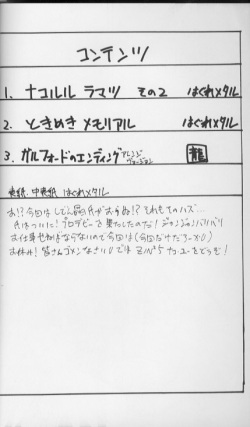 コンテンツ
1. ナコルル ラマツ その2 はぐれメタル
2. ときめきメモリアル はぐれメタル
3. ガルフォードのエンディング アレンジヴァージョン 龍
表紙、中表紙 はぐれメタル
お!?今回はしてん晶氏がおらぬ!?それもそのハズ…
氏はついに!プロデビューを果たしたのだ!ジャンジャンバリバリ
お仕事せねばならないので今回は(今回だけだろーか)
お休み!皆さんゴメンなさい